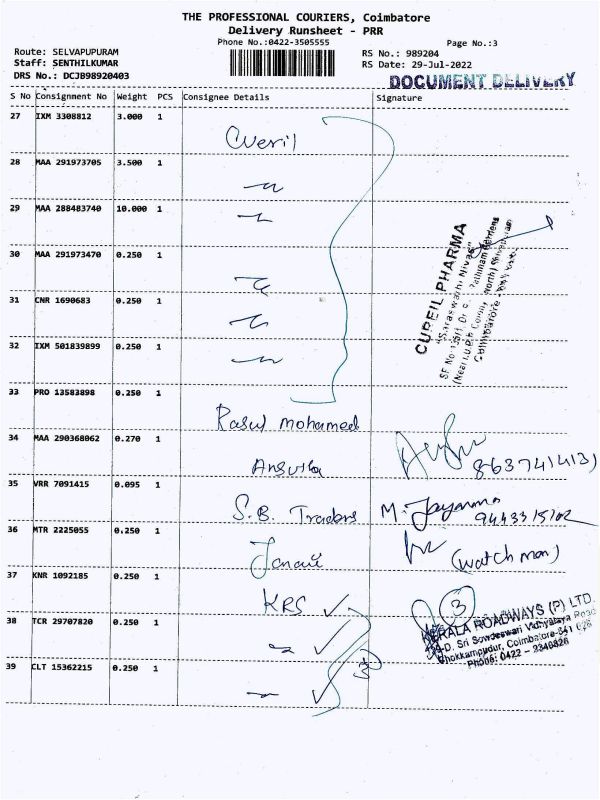 THE PROFESSIONAL COURIERS, Coimbatore
Delivery Runsheet - PRR
Phone No.:0422-3505555
Page No.:3
Route: SELVAPUPURAM
RS No.: 989204
Staff: SENTHILKUMAR
RS Date: 29-Jul-2022
DRS No.: DCJB98920403
DOCUMENT DELIVERY
S No Consignment No Weight PCS Consignee Details Signature
27 IXM 3308812 3.000 1
28 MAA 291973705 3.500 1
29 MAA 288483740 10.000 1
30 MAA 291973470 0.250 1
31 CNR 1690683 0.250 1
32 IXM 501839899 0.250 1
CUREIL PHARMA
"Saraswathi Nivas"
33 PRO 13583898 0.250 1 Rasul mohamed
34 MAA 290368062 0.270 1
35 VRR 7091415 0.095 1 S.B. Traders M. Jayamma
36 MTR 2225055 0.250 1 (watch man)
37 KNR 1092185 0.250 1 KRS 3
38 TCR 29707820 0.250 1
39 CLT 15362215 0.250 1
KERALA ROADWAYS (P) LTD.
Chokkampudur, Coimbatore-641
Phone: 0422 - 2346826